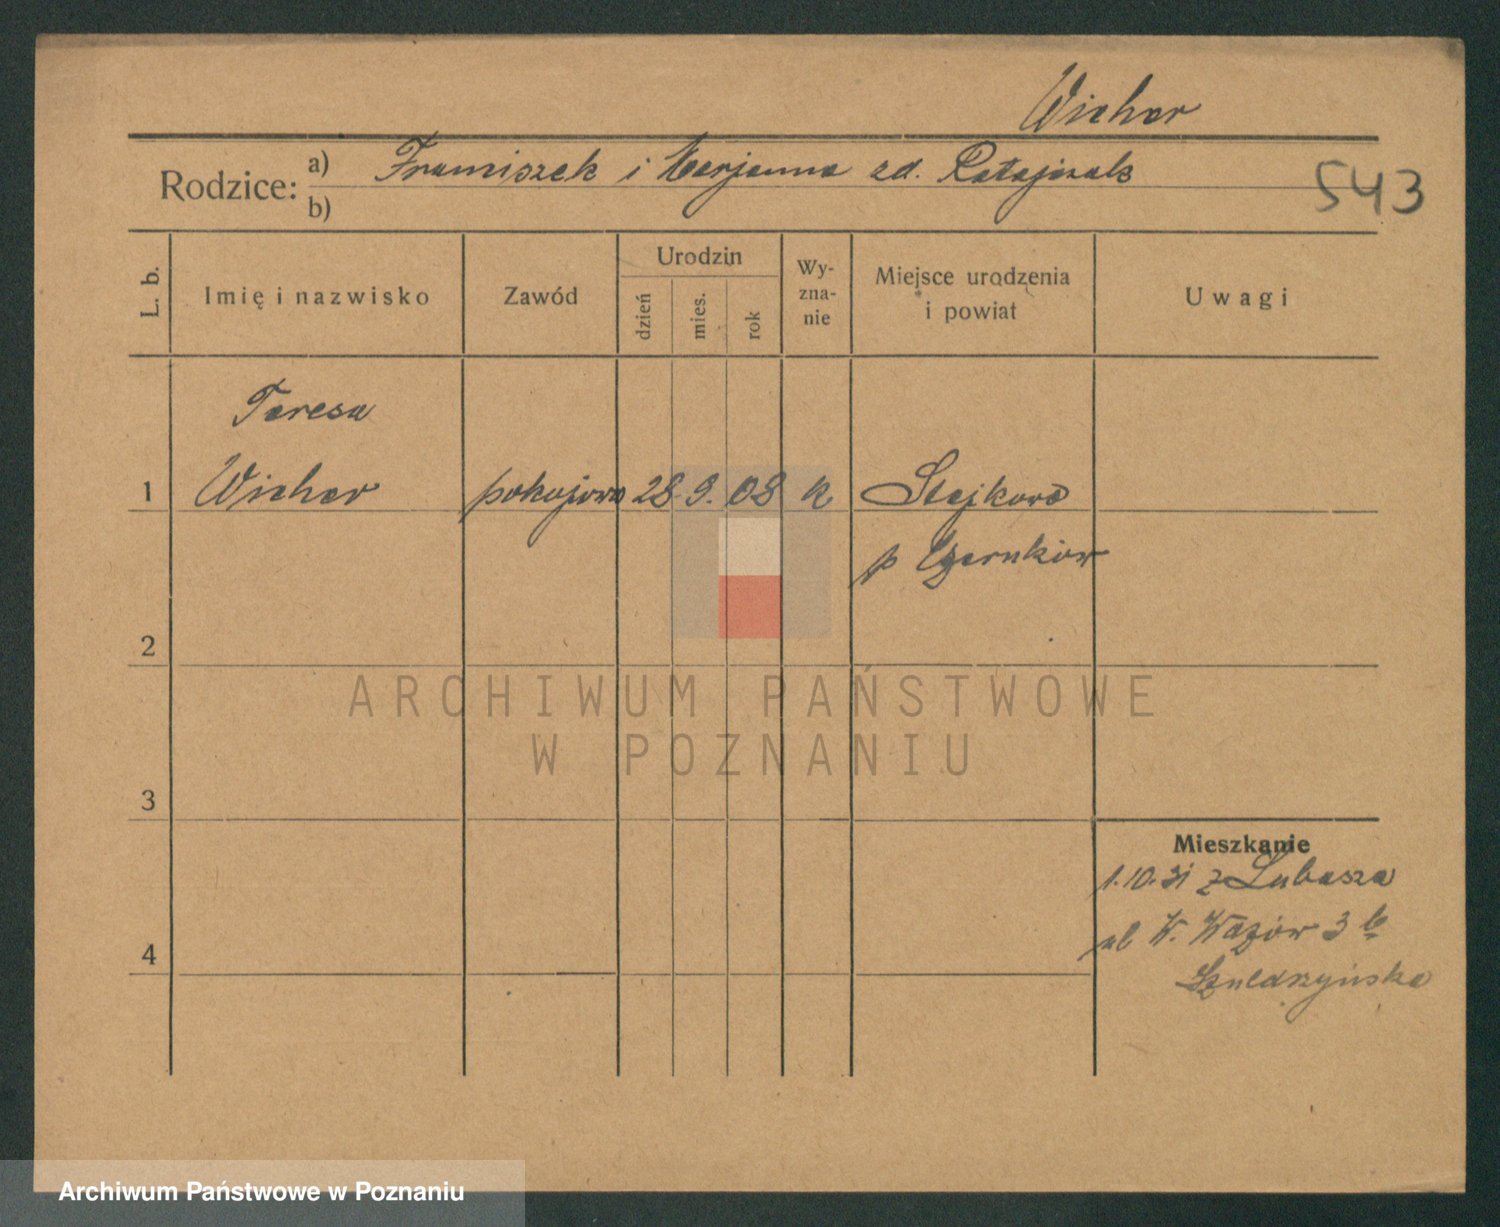 Wicher
Rodzice: a) Franciszek i Marjanna zd. Ratajczak
b)
543
L. b. Imię i nazwisko Zawód Urodzin dzień mies. rok Wyznanie Miejsce urodzenia i powiat Uwagi
Teresa
1 Wicher pokojowa 28 9. 08 k Stajkowo
p Czarnków
2
ARCHIWUM PAŃSTWOWE
W POZNANIU
3
Mieszkanie
1.10.31 z Lubasza
ul W. Wazów 3
4
Szuldrzyńska
Archiwum Państwowe w Poznaniu